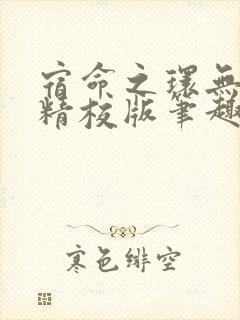 宿命之環無
精校版筆趣
寒色緋空